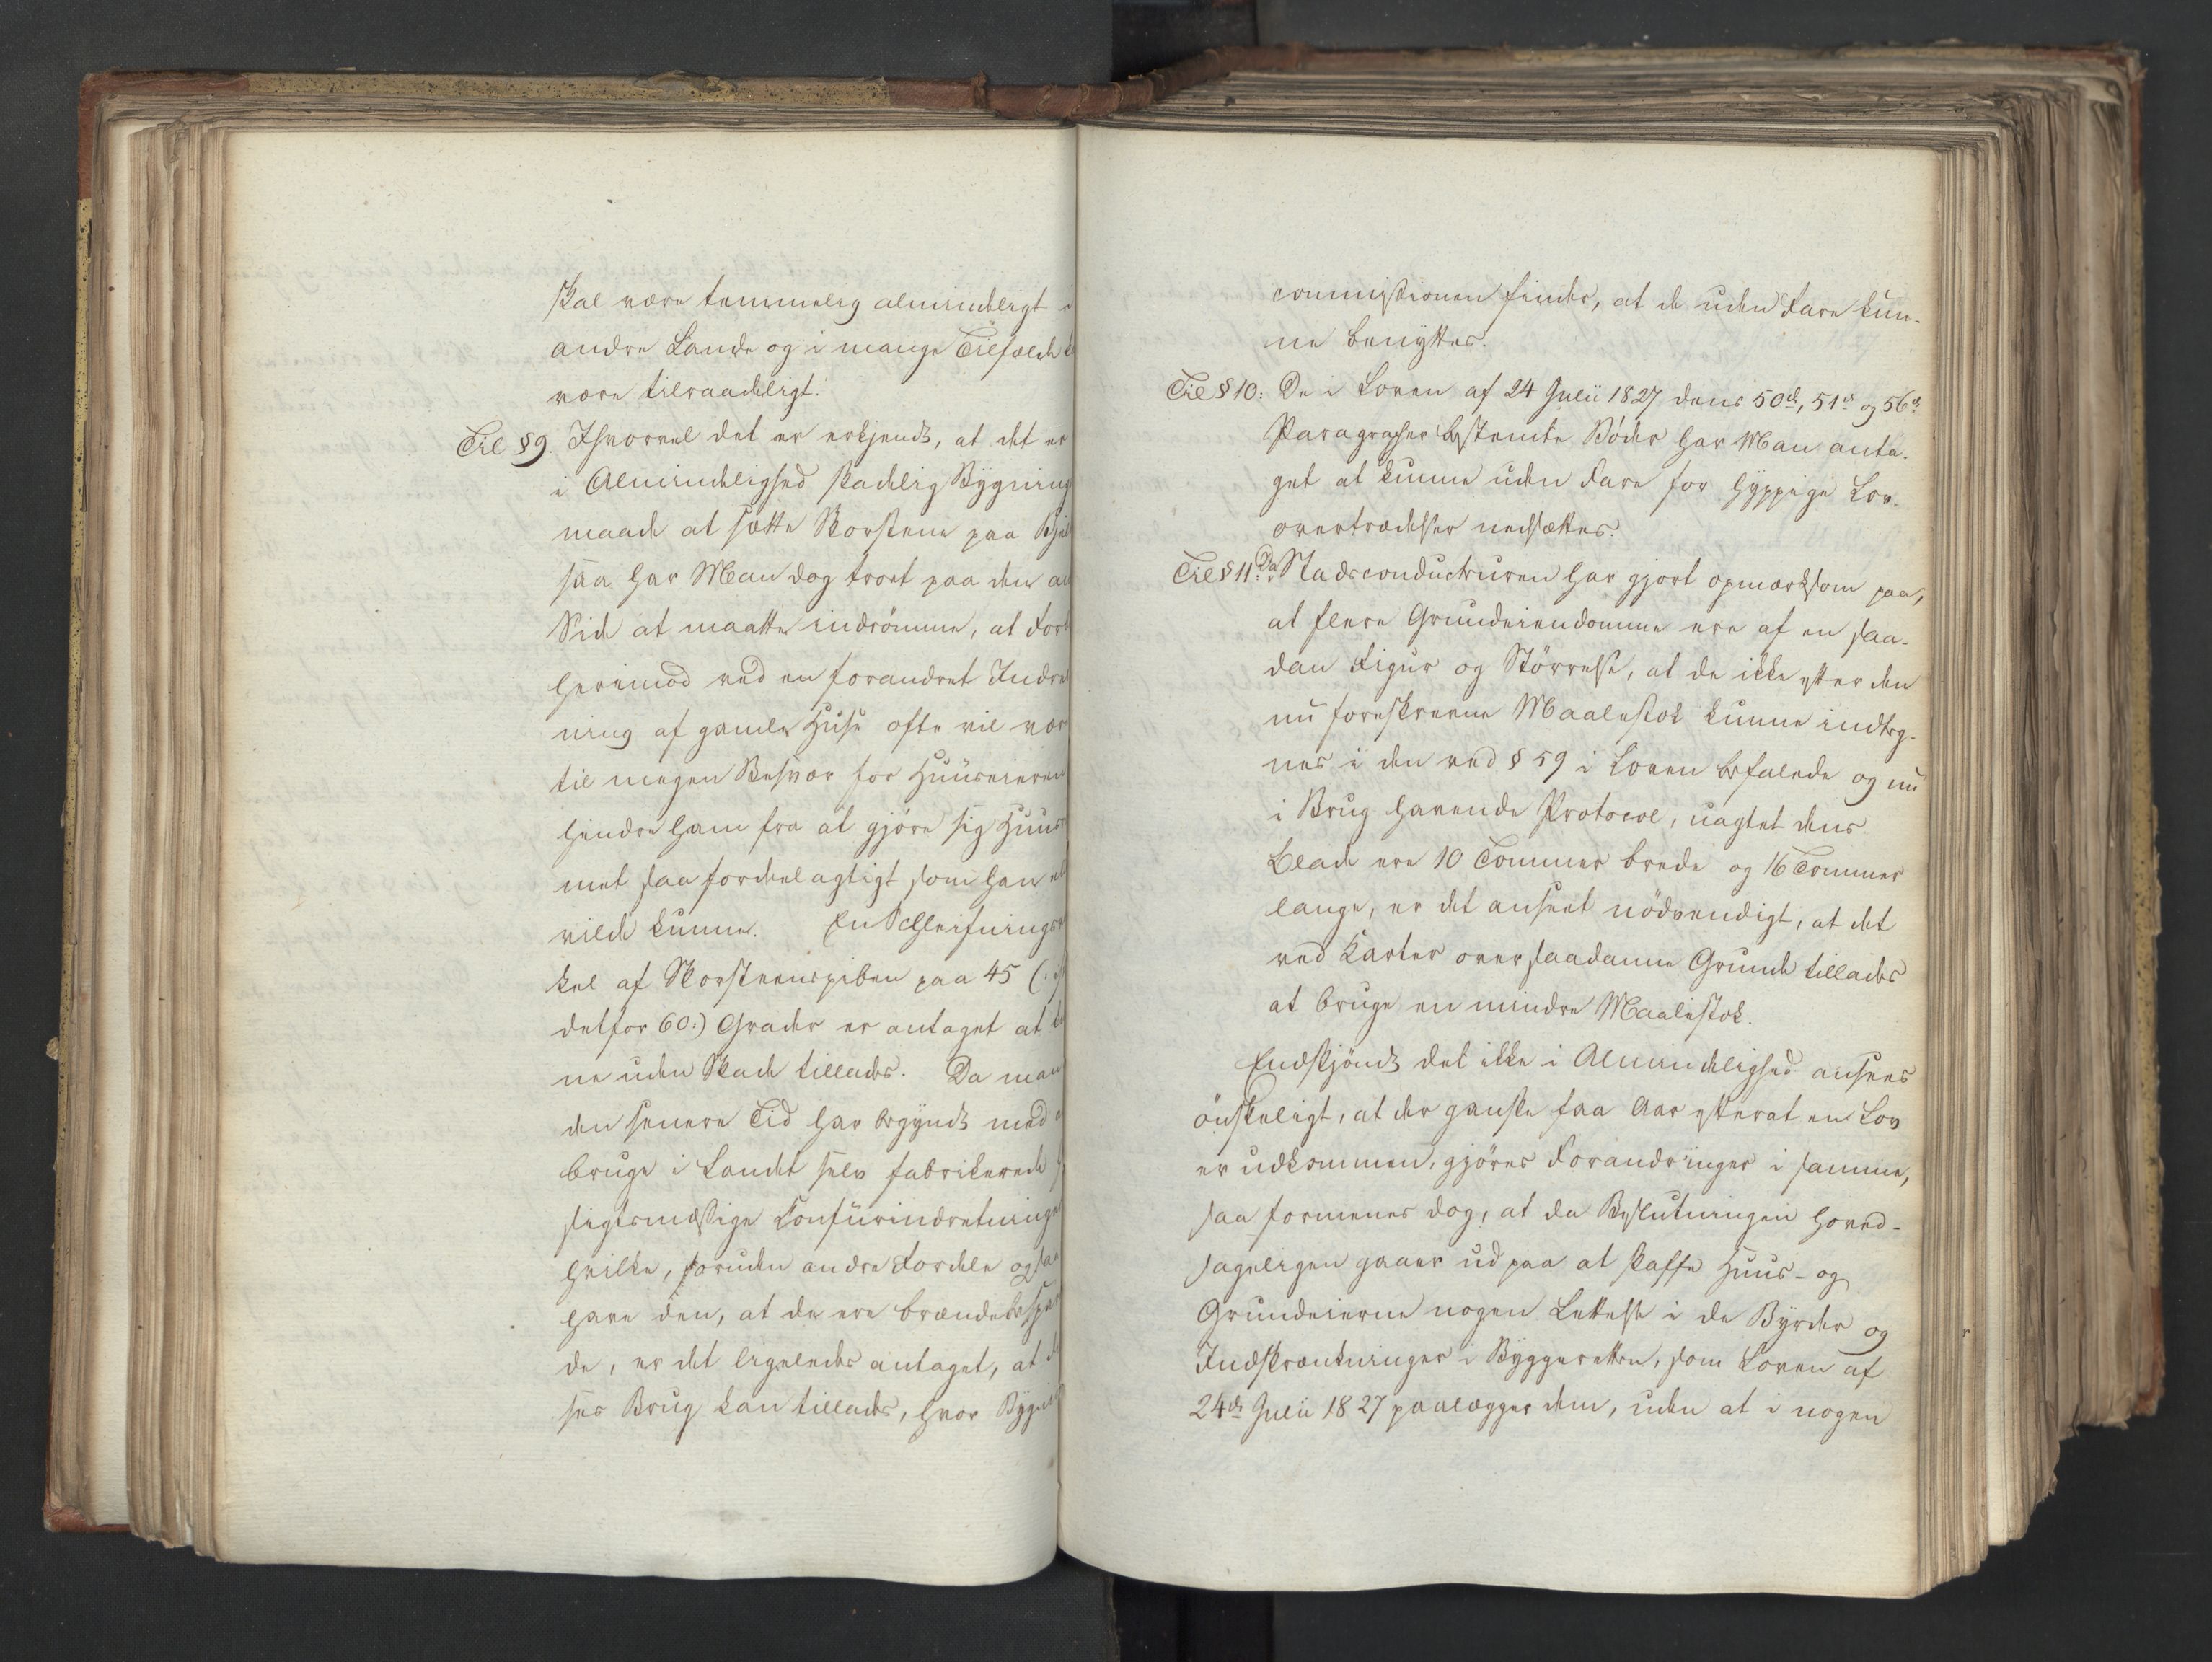 skal være temmelig almindeligt i
andre Lande og i mange Tilfælde
være tilraadeligt.
Til § 9. Ihvorvel det er erkjendt, at det er
i Almindelighed skadelig Bygnings
maade at sætte Skorstene paa
saa har Man dog troet paa den an
Side at maatte indrömme, at Forb
herimod ved en forandret Indret
ning af gamle Huse ofte vil vær
til megen Besvær for Huuseieren
hindre ham fra at gjöre sig Huus
met saa fordeelagtigt som han ell
vilde kunne. En Schleifnings
kel af Skorsteenspiben paa 45 (: i
detfor 60:) Grader er antaget at
ne uden Skade tillades. Da man
den senere Tid har begyndt med
bruge i Landet selv fabrikerede
sigtsmæssige Comfürindretninge
hvilke, foruden andre Fordele ogsaa
have den, at de ere brændebespar
de, er det ligeledes antaget, at
ses Brug kan tillades, hvor Bygni
commissionen finder, at de uden Fare kun-
ne benyttes.
Til § 10: De i Loven af 24 Julii 1827 dens 50de, 51de og 56de
Paragrapher bestemte Böder har Man anta-
get at kunne uden Fare for hyppige Lov-
overtrædelser nedsættes.
Til § 11: Da Stadsconducteuren har gjort opmærksom paa,
at flere Grundeiendomme ere af en saa-
dan Figur og Störrelse, at de ikke efter den
nu foreskrevne Maalestok kunne indteg-
nes i den ved § 59 i Loven befalede og nu
i Brug havende Protocol, uagtet dens
Blade ere 10 Tommer brede og 16 Tommer
lange, er det anseet nödvendigt, at det
ved Karter over saadanne Grunde tillades
at bruge en mindre Maalestok.
Endskjöndt det ikke i Almindelighed ansees
önskeligt, at der ganske faa Aar efterat en Lov
er udkommen, gjöres Forandringer i samme,
saa formenes dog, at da Beslutningen hoved-
sageligen gaaer ud paa at skaffe Huus- og
Grundeierne nogen Lettelse i de Byrder og
Indskrænkninger i Byggeretten, som Loven af
24de Julii 1827 paalægger dem, uden at i nogen